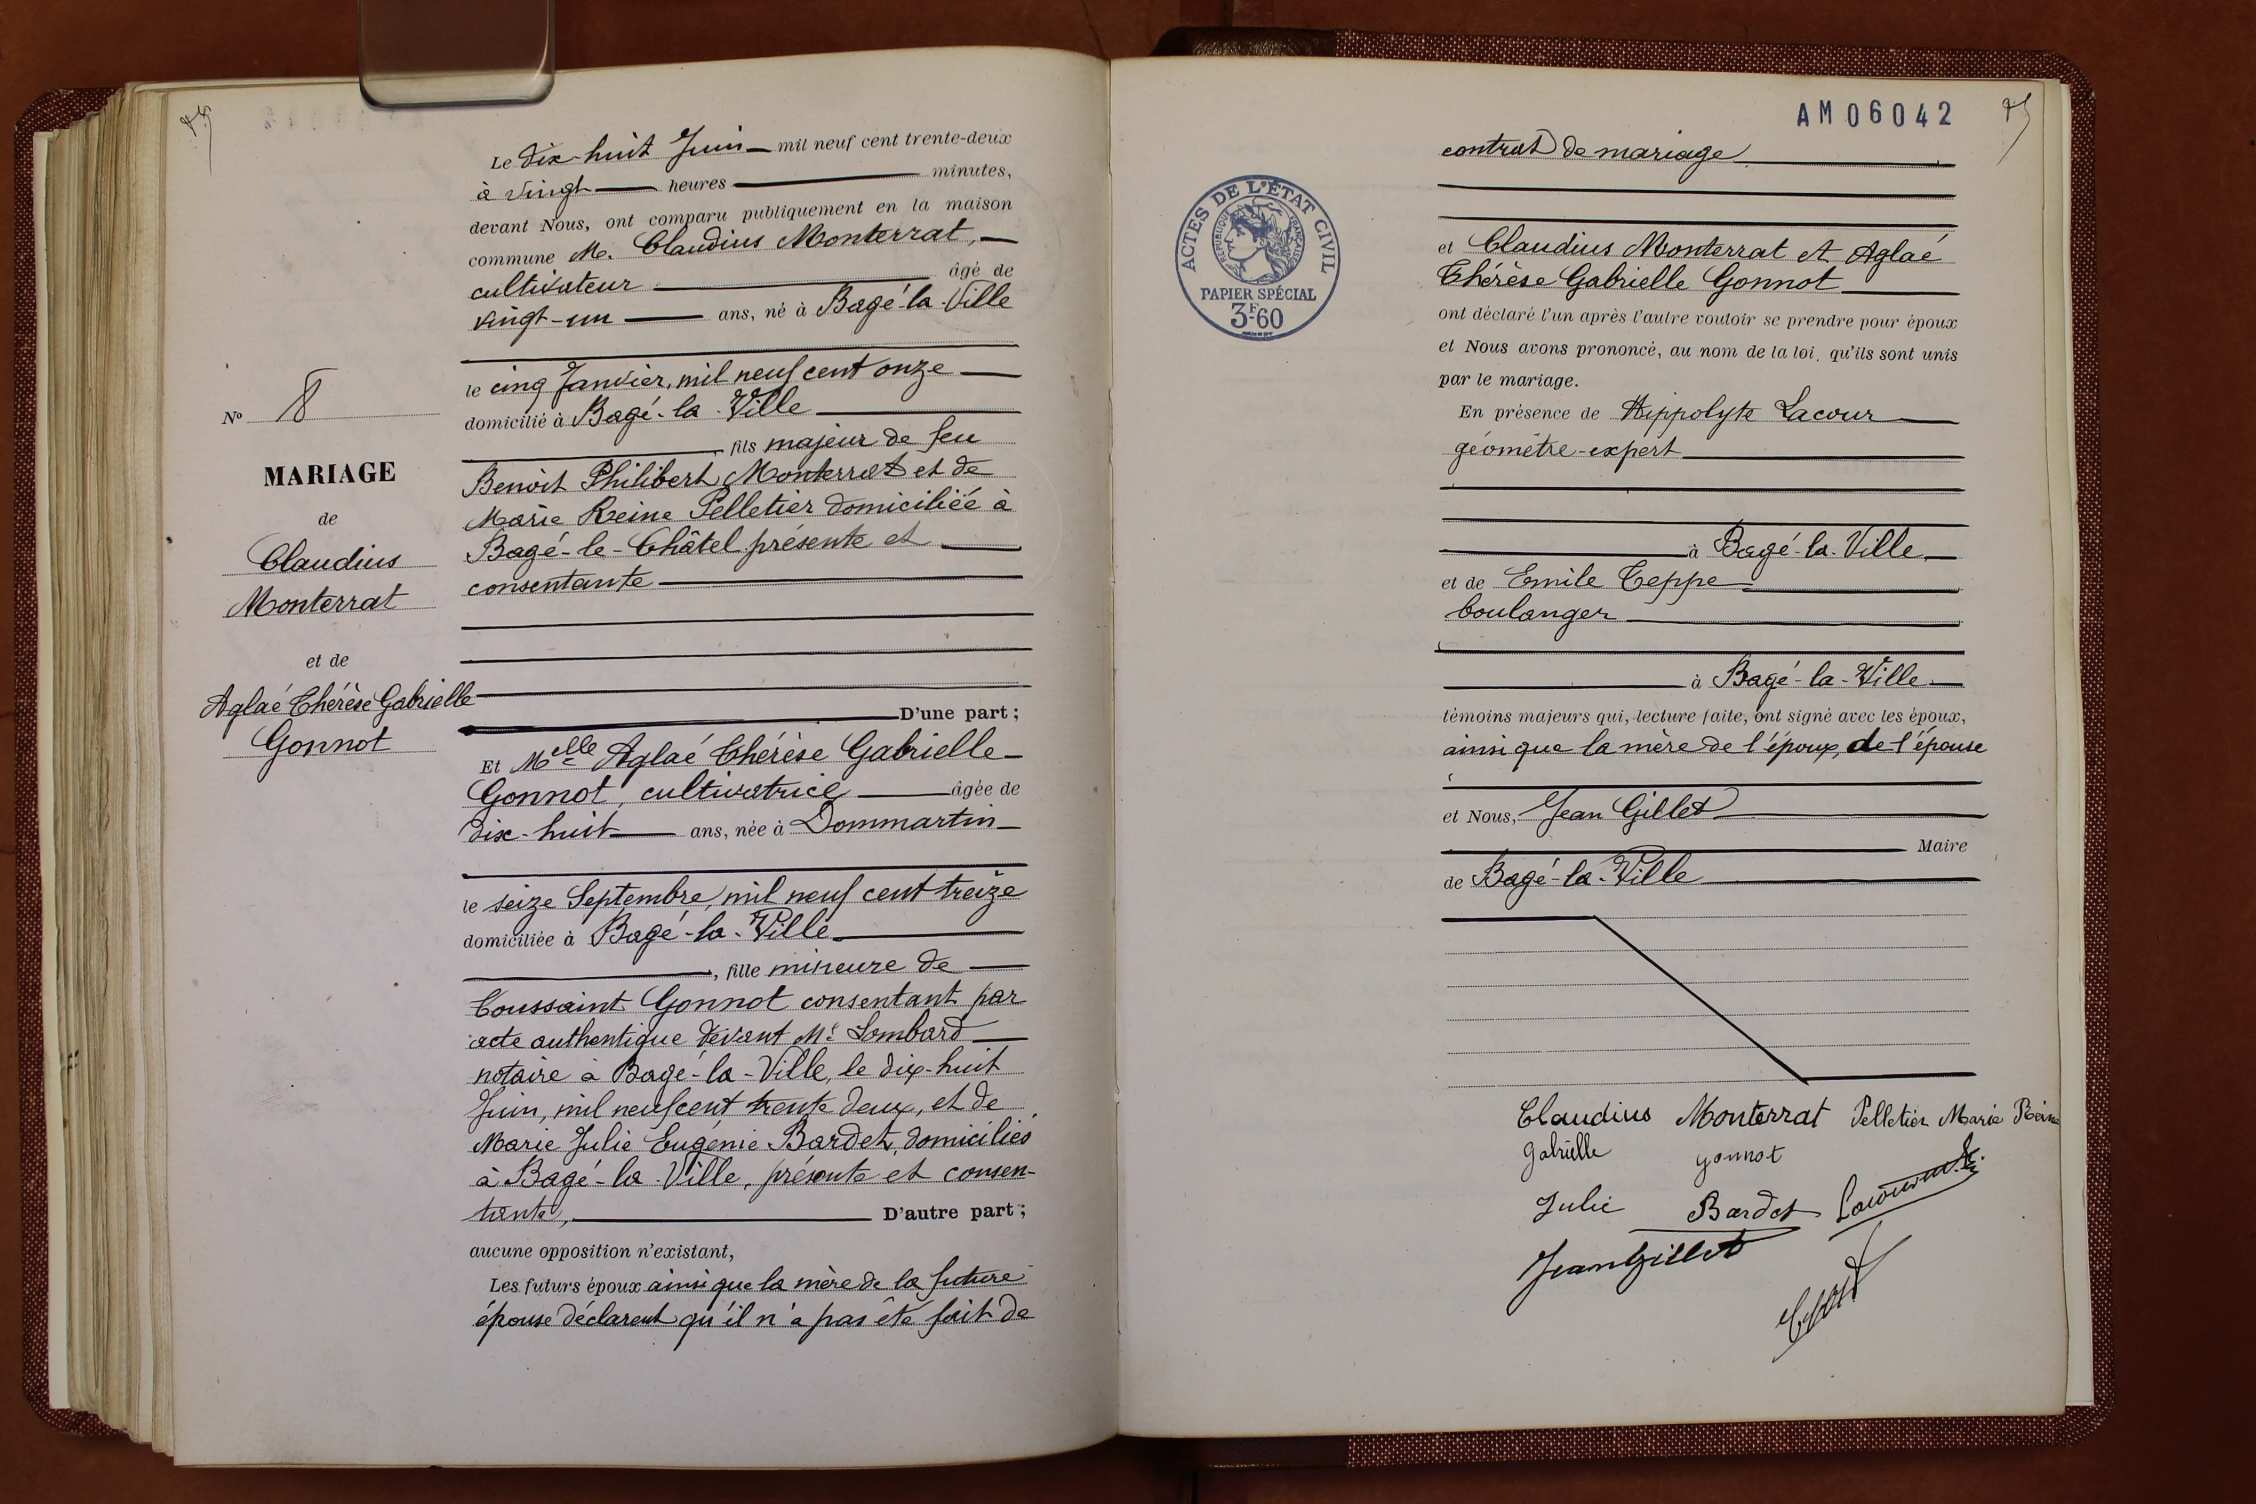 Le dix-huit Juin mil neuf cent trente-deux
à vingt heures minutes,
devant Nous, ont comparu publiquement en la maison
commune M. Claudius Monterrat,
cultivateur âgé de
vingt-un ans, né à Bagé-la-Ville
le cinq Janvier, mil neuf cent onze
domicilié à Bagé-la-Ville
, fils majeur de feu
Benoît Philibert Monterrat et de
Marie Reine Pelletier domiciliée à
Bagé-le-Châtel présente et
consentante
D'une part ;
Et Melle Aglaé Thérèse Gabrielle
Gonnot, cultivatrice âgée de
dix-huit ans, née à Dommartin
le seize Septembre, mil neuf cent treize
domiciliée à Bagé-la-Ville
, fille mineure de
Toussaint Gonnot consentant par
acte authentique devant Me Lombard
notaire à Bagé-la-Ville, le dix-huit
Juin, mil neuf cent trente deux, et de
Marie Julie Eugénie Bardet, domiciliés
à Bagé-la-Ville, présente et consen-
tante, D'autre part ;
aucune opposition n'existant,
Les futurs époux ainsi que la mère de la future
épouse déclarent qu'il n'a pas été fait de
No 8
MARIAGE
de
Claudius
Monterrat
et de
Aglaé Thérèse Gabrielle
Gonnot
AM06042
contrat de mariage
et Claudius Monterrat et Aglaé
Thérèse Gabrielle Gonnot
ont déclaré l'un après l'autre vouloir se prendre pour époux
et Nous avons prononcé, au nom de la loi, qu'ils sont unis
par le mariage.
En présence de Hippolyte Lacour
géomètre-expert
à Bagé-la-Ville
et de Emile Teppe
boulanger
à Bagé-la-Ville
témoins majeurs qui, lecture faite, ont signé avec les époux,
ainsi que la mère de l'époux, de l'épouse
et Nous, Jean Gillet
Maire
de Bagé-la-Ville
ACTES DE L'ÉTAT CIVIL
RÉPUBLIQUE FRANÇAISE
PAPIER SPÉCIAL
3F60
Claudius Monterrat Pelletier Marie Reine
Gabrielle Gonnot
Julie Bardet
Jean Gillet